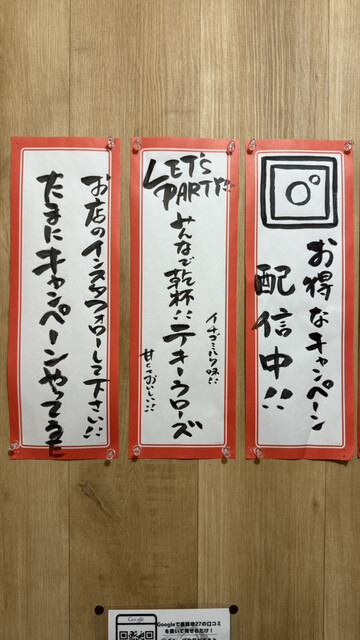 お得なキャンペーン
配信中!!
LET'S
PARTY!!
みんなで乾杯!! テキーラローズ
イチゴミルク味!!
甘くておいしい!!
お店のインスタフォローして下さい!!
たまにキャンペーンやってるモ
Google
Googleで居酒地27の口コミ
を書いて見せるだけ!